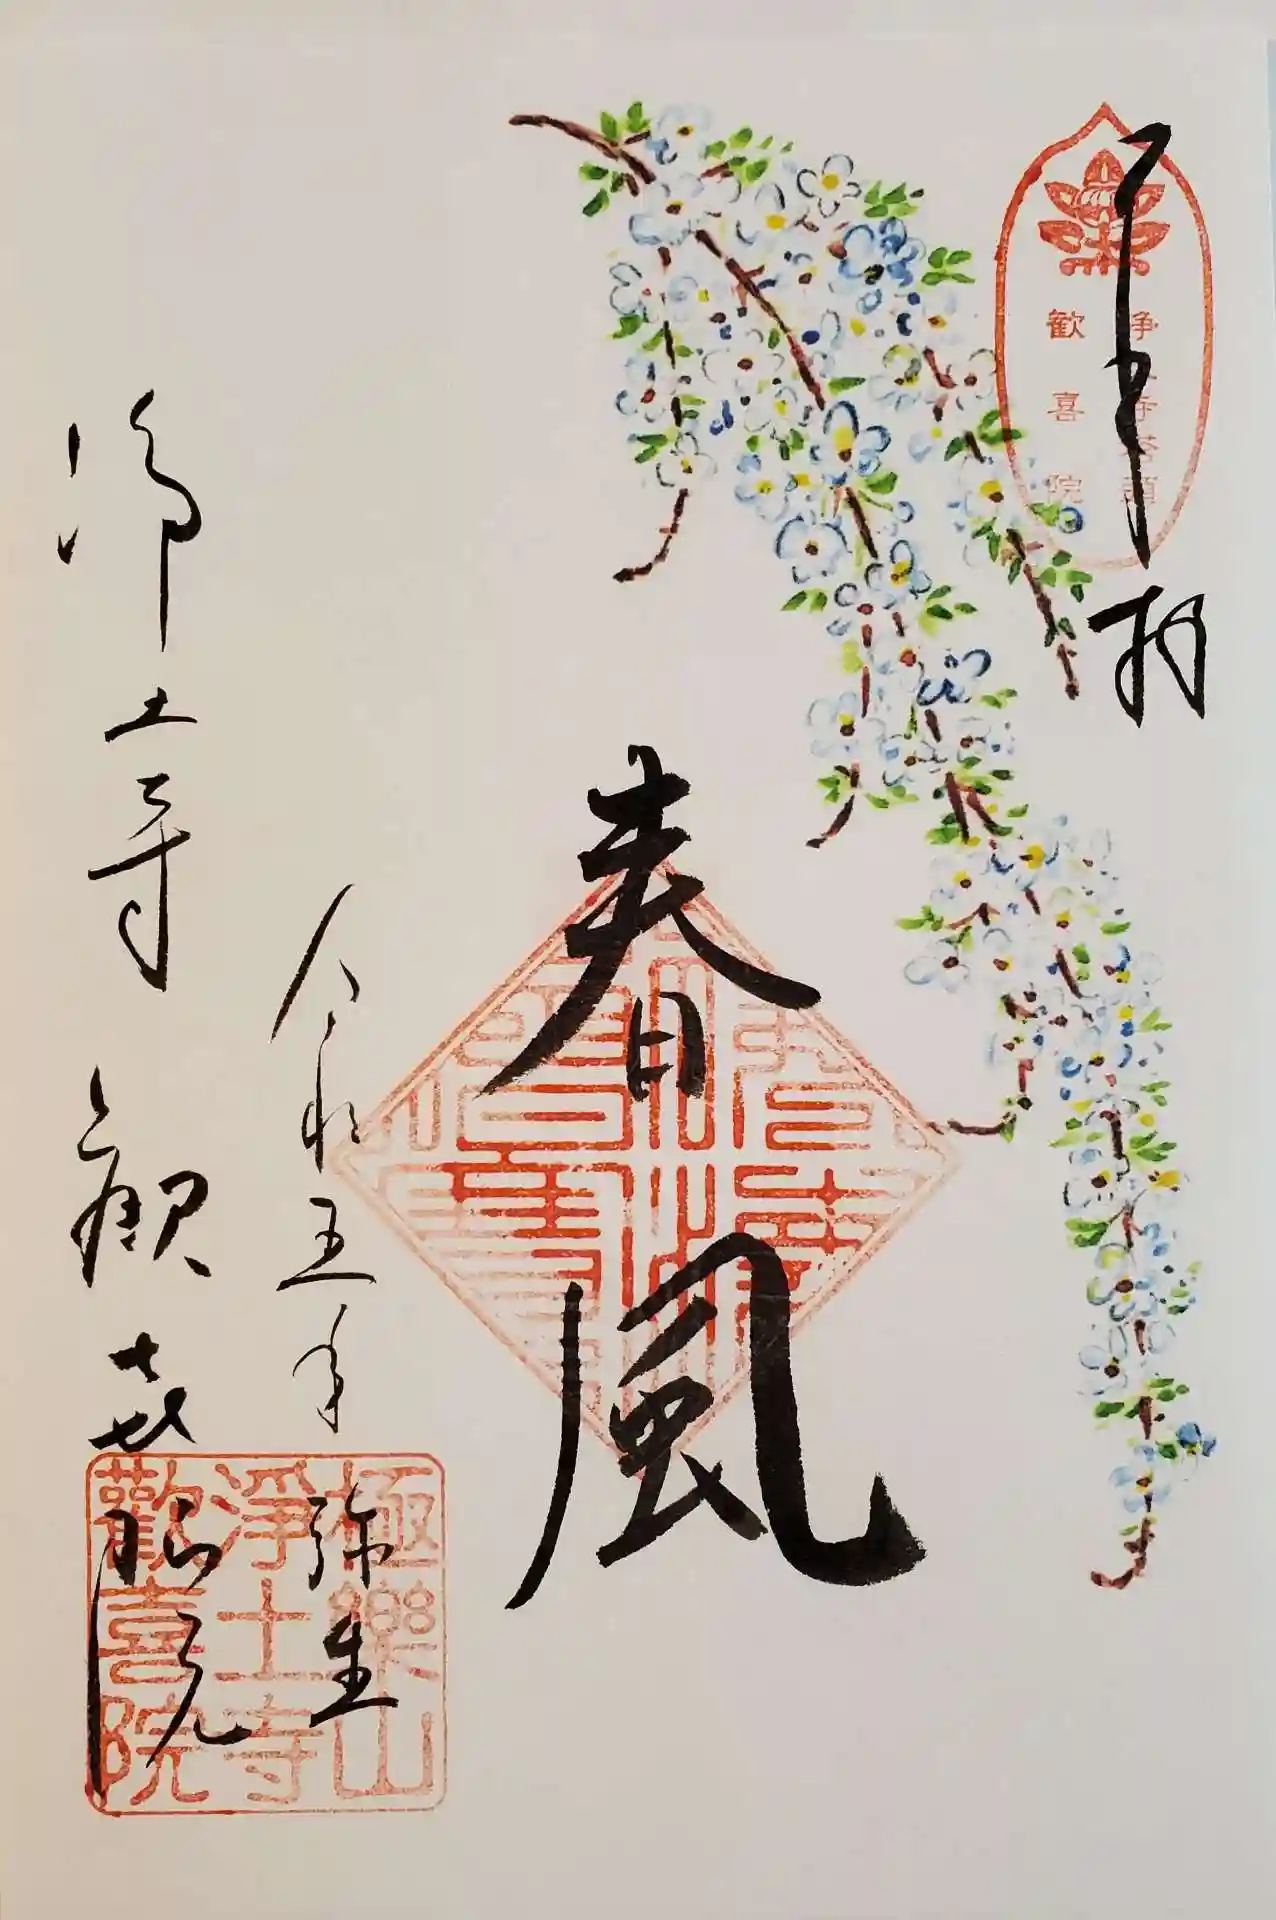 奉拝
浄土寺塔頭
歓喜院
春風
令和五年
弥生
浄土寺
歓喜院
極樂山
淨土寺
歡喜院